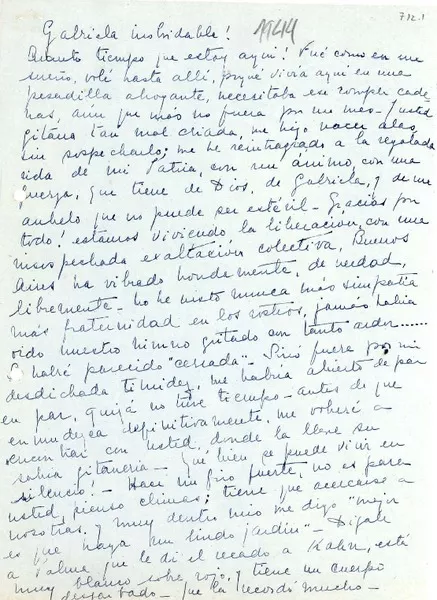 712.1
1944
Gabriela inolvidable!
Cuanto tiempo que estoy aquí! Fué como en un
sueño, volé hasta allí, porqué vivía aquí en una
pesadilla ahogante, necesitaba romper cade-
nas, aún que más no fuera por un mes - Usted
gitana tan mal criada, me hizo nacer alas,
sin sospecharlo; me he reintegrado a la regalada
vida de mi Patria, con un ánimo, con una
fuerza, que tiene de Dios, de Gabriela, y de un
anhelo que no puede ser estéril - Gracias por
todo! estamos viviendo la liberación, con una
insospechada exaltación colectiva, Buenos
Aires ha vibrado hondamente, de verdad,
libremente - no he visto nunca más simpatía
más fraternidad en los rostros, jamás había
oído nuestro himno gritado con tanto ardor......
Le habré parecido "cerrada" - Sinó fuera por mi
desdichada timidez, me habría abierto de par
en par, quizá no tuve tiempo - antes de que
enmudezca definitivamente, me volveré a
encontrar con usted, donde la lleve su
sabia gitanería - Qué bien se puede vivir en
silencio! - Hace un frío fuerte, no es para
usted, pienso climas; tiene que acercarse a
nosotras, y muy dentro mío me digo "mejor
es que haya un lindo jardín" - Dígale
a Palma que le dí el recado a Kahn, está
muy blanco sobre rojo, y tiene un cuerpo
desgarbado - que la recordó mucho -